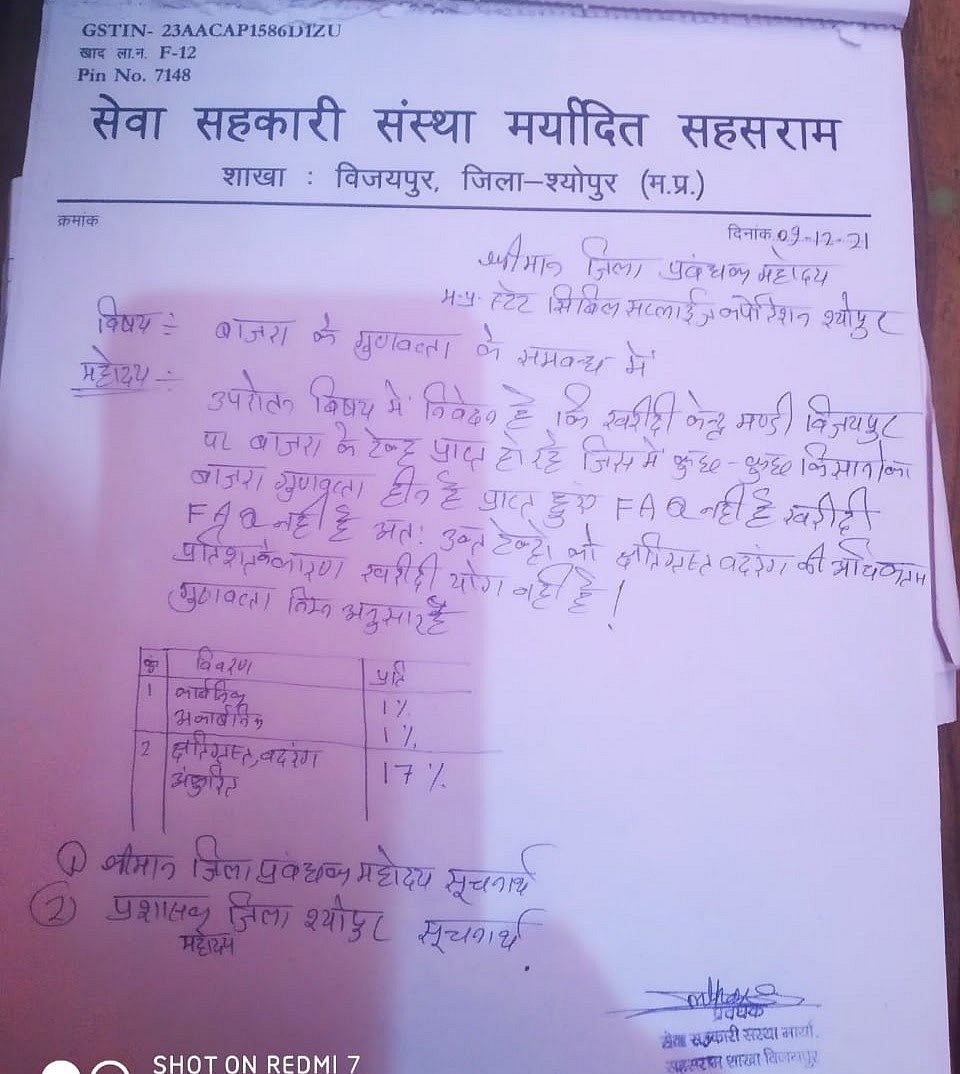 GSTIN- 23AACAP1586D1ZU
खाद ला.न. F-12
Pin No. 7148
सेवा सहकारी संस्था मर्यादित सहसराम
शाखा : विजयपुर, जिला-श्योपुर (म.प्र.)
क्रमांक
दिनांक 09-12-21
श्रीमान जिला प्रबंधक महोदय
म.प्र. स्टेट सिविल सप्लाईज कार्पोरेशन श्योपुर
विषय :- बाजरा के गुणवत्ता के समबन्ध में
महोदय :-
उपरोक्त बिषय में निवेदन है कि खरीदी केन्द्र मण्डी विजयपुर
पर बाजरा के टेन्ट प्राप्त हो रहे जिसमें कुछ-कुछ किसानो का
बाजरा गुणवत्ता हीन है प्राप्त हुए FAQ नही है खरीदी
FAQ नही है अतः उक्त को क्षतिग्रस्त बदरंग की अधिकतम
प्रतिशत के कारण खरीदी योग नहीं है !
गुणवत्ता निम्न अनुसार है
क्रं विवरण प्रति
1 कार्बनिक 1%
अकार्बनिक 1%
2 क्षतिग्रस्त, बदरंग
अंकुरित 17%
① श्रीमान जिला प्रबंधक महोदय सूचनार्थ
② प्रशासक जिला श्योपुर सूचनार्थ
महोदय
प्रबंधक
सेवा सहकारी संस्था मर्या.
सहसराम शाखा विजयपुर
SHOT ON REDMI 7